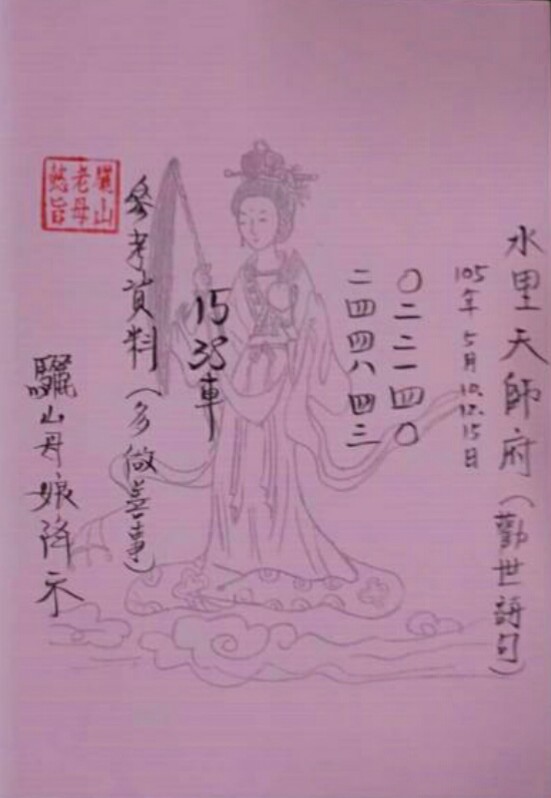 水里天師府（勸世詩句）
105年5月10.12.15日
〇二二一四〇
二四四八四三
15 35車
參考資料（多做善事）
驪山
老母
旨
驪山母娘降示